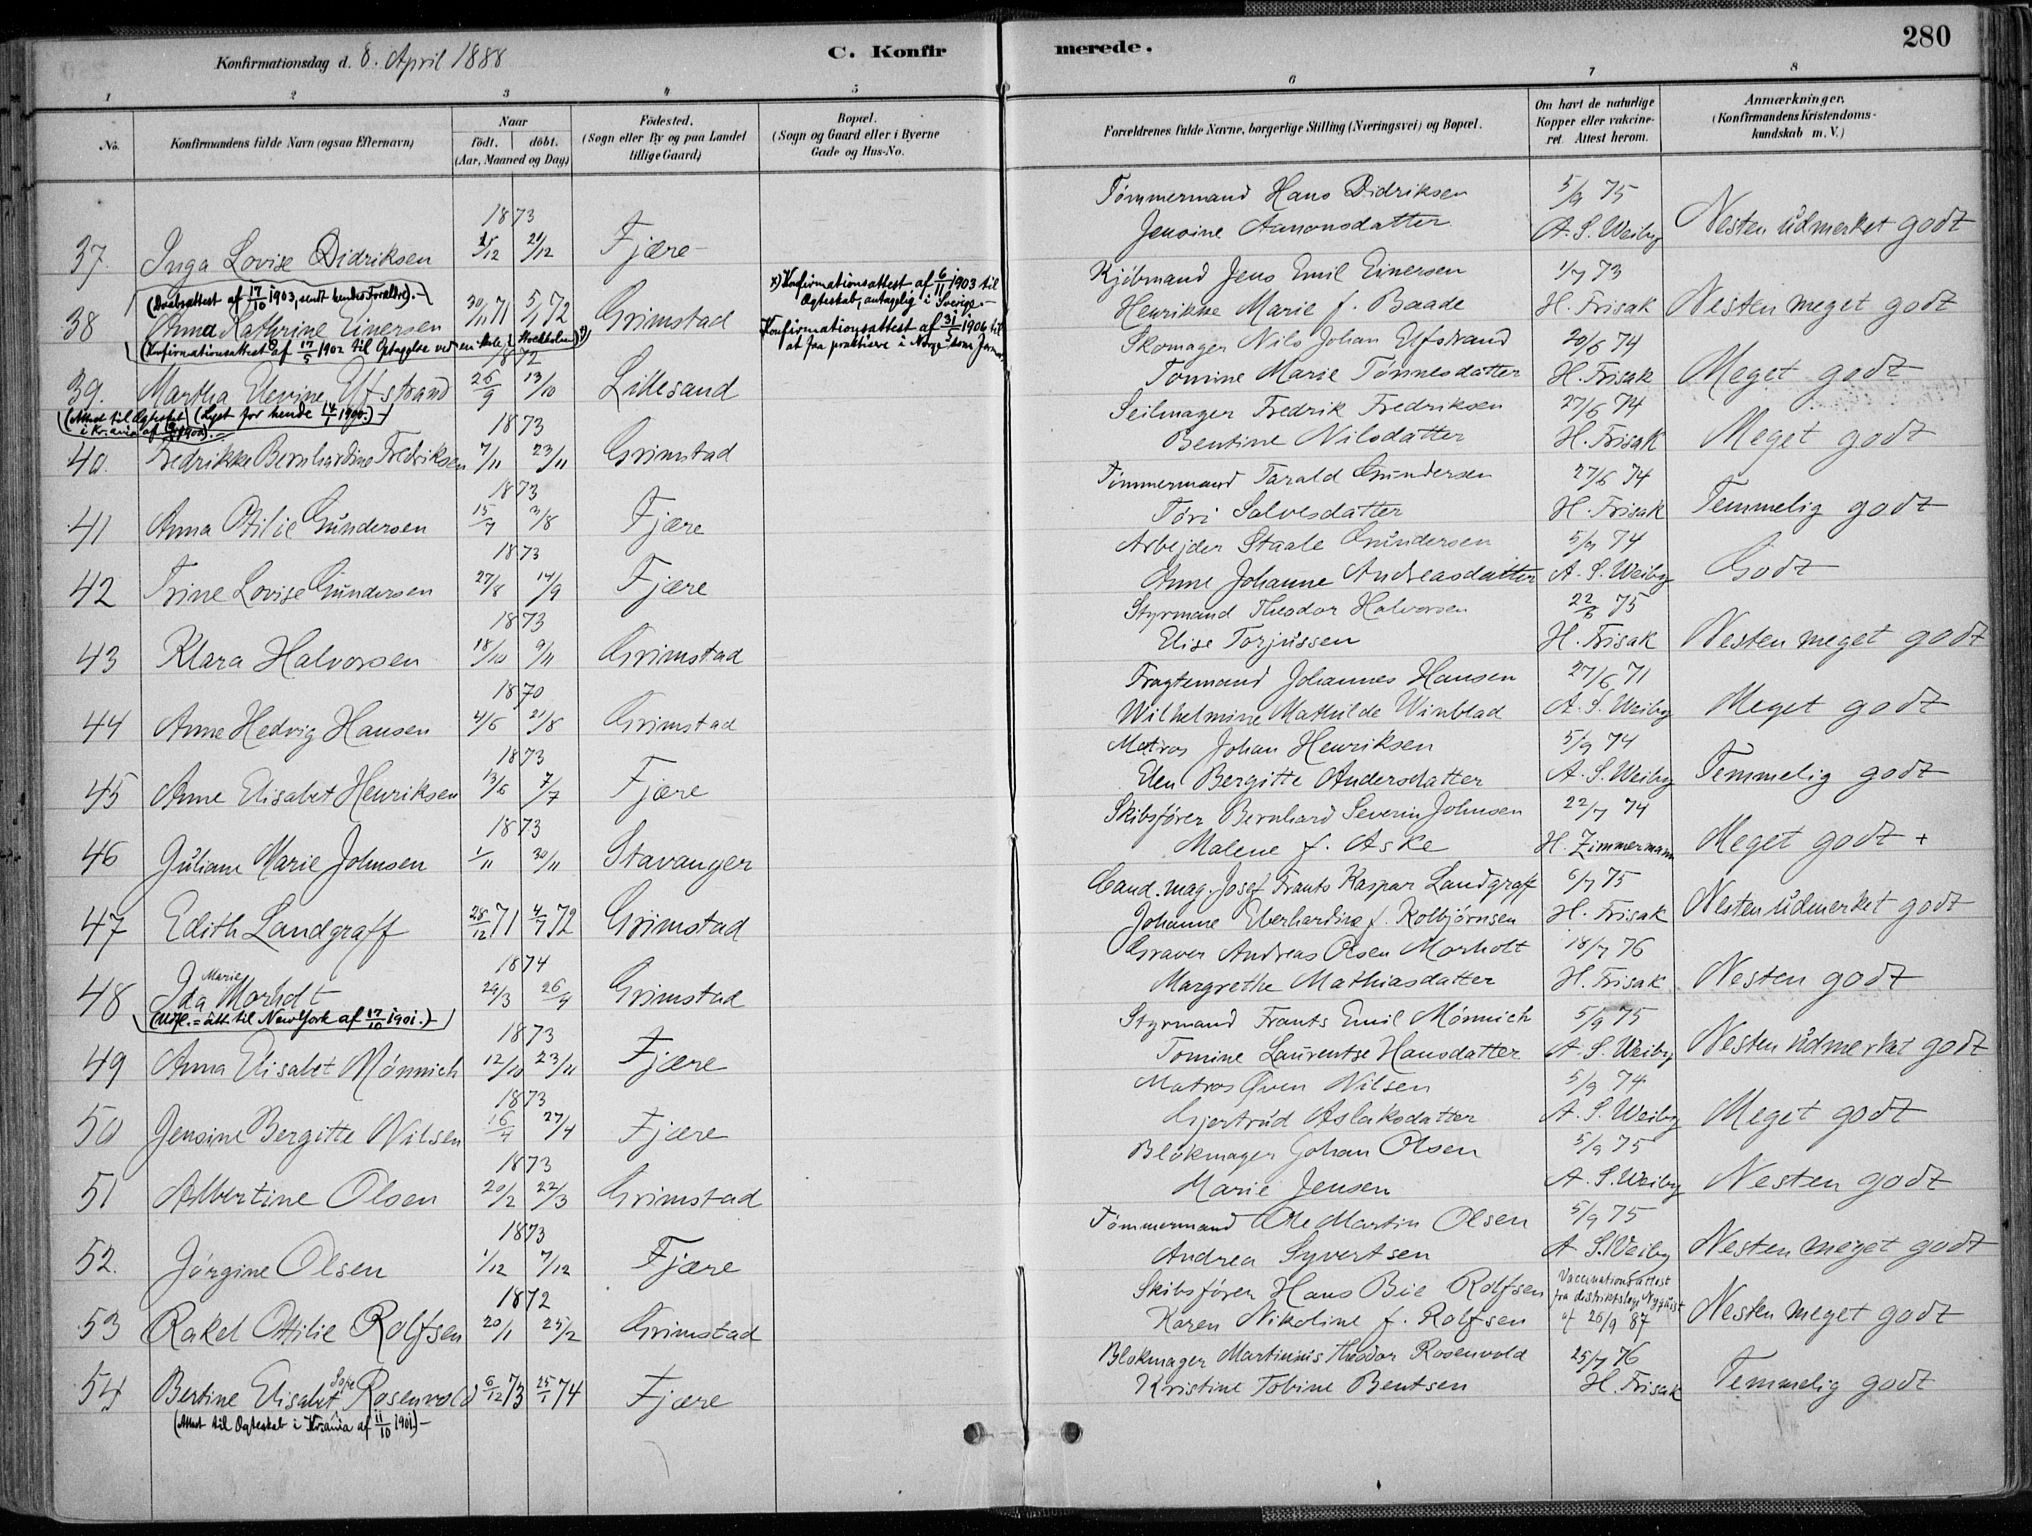 280
Konfirmationsdag d. 8. April 1888
C. Konfirmerede.
1 2 3 4 5 6 7 8
No. Konfirmandens fulde Navn (ogsaa Efternavn) Naar födt. döbt. (Aar, Maaned og Dag) Födested. (Sogn eller By og paa Landet tillige Gaard) Bopæl. (Sogn og Gaard eller i Byerne Gade og Hus-No. Forældrenes fulde Navne, borgerlige Stilling (Næringsvei) og Bopæl. Om havt de naturlige Kopper eller vakcineret. Attest herom. Anmærkninger. (Konfirmandens Kristendomskundskab m. V.)
Tømmermand Hans Didriksen 5/9 75
1873
37. Inga Lovise Didriksen 21/12 Fjære Jensine Aanonsdatter A. S. Weiby Nesten udmerket godt
(Daabsattest af 17/10 1903, sendt hendes Forældre).-
x) Konfirmationsattest af 6/11 1903 til Ægteskab, antagelig i Sverige.-
Kjøbmand Jens Emil Einersen 1/7 73
38 Anna Kathrine Einersen 30/11 71 5/1 72 Grimstad Henrikke Marie f. Baade H. Frisak Nesten meget godt
(Konfirmationsattest af 17/5 1902 til Optagelse ved en Skole i Stockholm) x)
Konfirmationsattest af 31/5 1906 til at faa praktisere i Norge som
Skomager Nils Johan Elfstrand 20/6 74
1872
39. Martha Elevine Elfstrand 26/9 13/10 Lillesand Tomine Marie Tønnesdatter H. Frisak Meget godt
(Attest til Ægteskab i Kr.ania af 1900).- (Lyst for hende 14/1 1900.)-
Seilmager Fredrik Fredriksen 27/6 74
1873
40. Fredrikke Bernhardine Fredriksen 7/11 23/11 Grimstad Bentine Nilsdatter H. Frisak Meget godt
Tømmermand Tarald Gundersen 27/6 74
1873
41 Anna Otilie Gundersen 15/7 3/8 Fjære Tøri Salvesdatter H. Frisak Temmelig godt
Arbejder Staale Gundersen 5/9 74
1873
42 Trine Lovise Gundersen 27/8 14/9 Fjære Anne Johanne Andreasdatter A. S. Weiby Godt
Styrmand Theodor Halvorsen 22/6 75
1873
43 Klara Halvorsen 18/10 9/11 Grimstad Elise Torjussen H. Frisak Nesten meget godt
Fragtemand Johannes Hansen 27/6 71
1870
44 Anne Hedvig Hansen 4/6 21/8 Grimstad Wilhelmine Mathilde Winblad A. S. Weiby Meget godt
Matros Johan Henriksen 5/9 74
1873
45 Anne Elisabet Henriksen 13/6 7/7 Fjære Elen Bergitte Andersdatter A. S. Weiby Temmelig godt
Skibsfører Bernhard Severin Johnsen 22/7 74
1873
46 Juliane Marie Johnsen 1/11 30/11 Stavanger Malene f. Aske H. Zimmermann Meget godt +
Cand. mag. Josef Frants Kaspar Landgraff 6/7 75
47 Edith Landgraff 28/12 71 4/7 72 Grimstad Johanne Eberhardine f. Kolbjørnsen H. Frisak Nesten udmerket godt
Graver Andreas Olsen Morholt 18/7 76
1874
48 Ida Marie Morholt 29/3 26/4 Grimstad Margrethe Mathiasdatter H. Frisak Nesten godt
(Udfl.=att til New York af 17/10 1901.)-
Styrmand Frants Emil Mønnich 5/9 75
1873
49 Anna Elisabet Mønnich 12/10 23/11 Fjære Tomine Laurentse Hansdatter A. S. Weiby Nesten udmerket godt
Matros Øven Nilsen 5/9 74
1873
50 Jensine Bergitte Nilsen 16/4 27/4 Fjære Gjertrud Aslaksdatter A. S. Weiby Meget godt
Blokmager Johan Olsen 5/9 75
1873
51 Albertine Olsen 20/2 22/3 Grimstad Marie Jensen A. S. Weiby Nesten godt
Tømmermand Ole Martin Olsen 5/9 75
1873
52. Jørgine Olsen 1/12 7/12 Fjære Andrea Syvertsen A. S. Weiby Nesten meget godt
Skibsfører Hans Bie Rolfsen Vaccinationsattest fra distriktslæge
1872
53 Rakel Ottilie Rolfsen 20/1 25/2 Grimstad Karen Nikoline f. Rolfsen af 26/9 87 Nesten meget godt
Blokmager Martinius Theodor Rosenvold 25/7 76
54 Bertine Elisabet Sofie Rosenvold 6/12 73 25/1 74 Fjære Kristine Tobine Bentsen H. Frisak Temmelig godt
(Attest til Ægteskab i Kr.ania af 11/10 1901)-